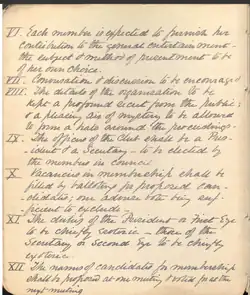 VI. Each member is expected to furnish her
contribution to the general entertainment -
the subject & method of presentment to be
of her own choice.
VII. Conversation & discussion to be encouraged
VIII. The details of the organization to be
kept a profound secret from the public;
& a pleasing air of mystery to be allowed
to form a halo around the proceedings.
IX. The officers of the Club shall be a Pres-
ident & a Secretary - to be elected by
the members in council
X. Vacancies in membership shall be
filled by balloting for proposed can-
didates; one adverse vote being suf-
ficient to exclude.
XI. The duties of the President or First Eye
to be chiefly esoteric - those of the
Secretary or Second Eye to be chiefly
exoteric.
XII. The names of candidates for membership
shall be proposed at one meeting & voted for at the
next meeting